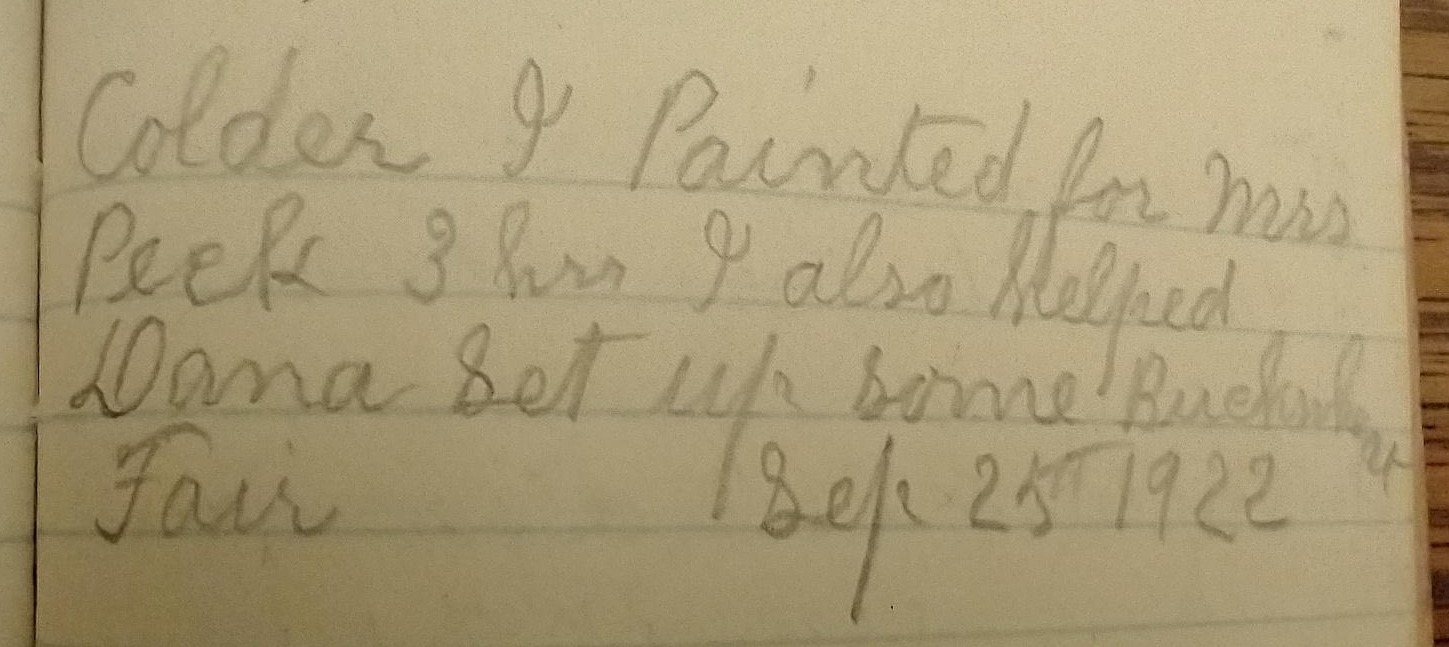 Colder I Painted for Mrs
Peek 3 hrs I also Helped
Dana Set up some
Fair Sep 25 1922